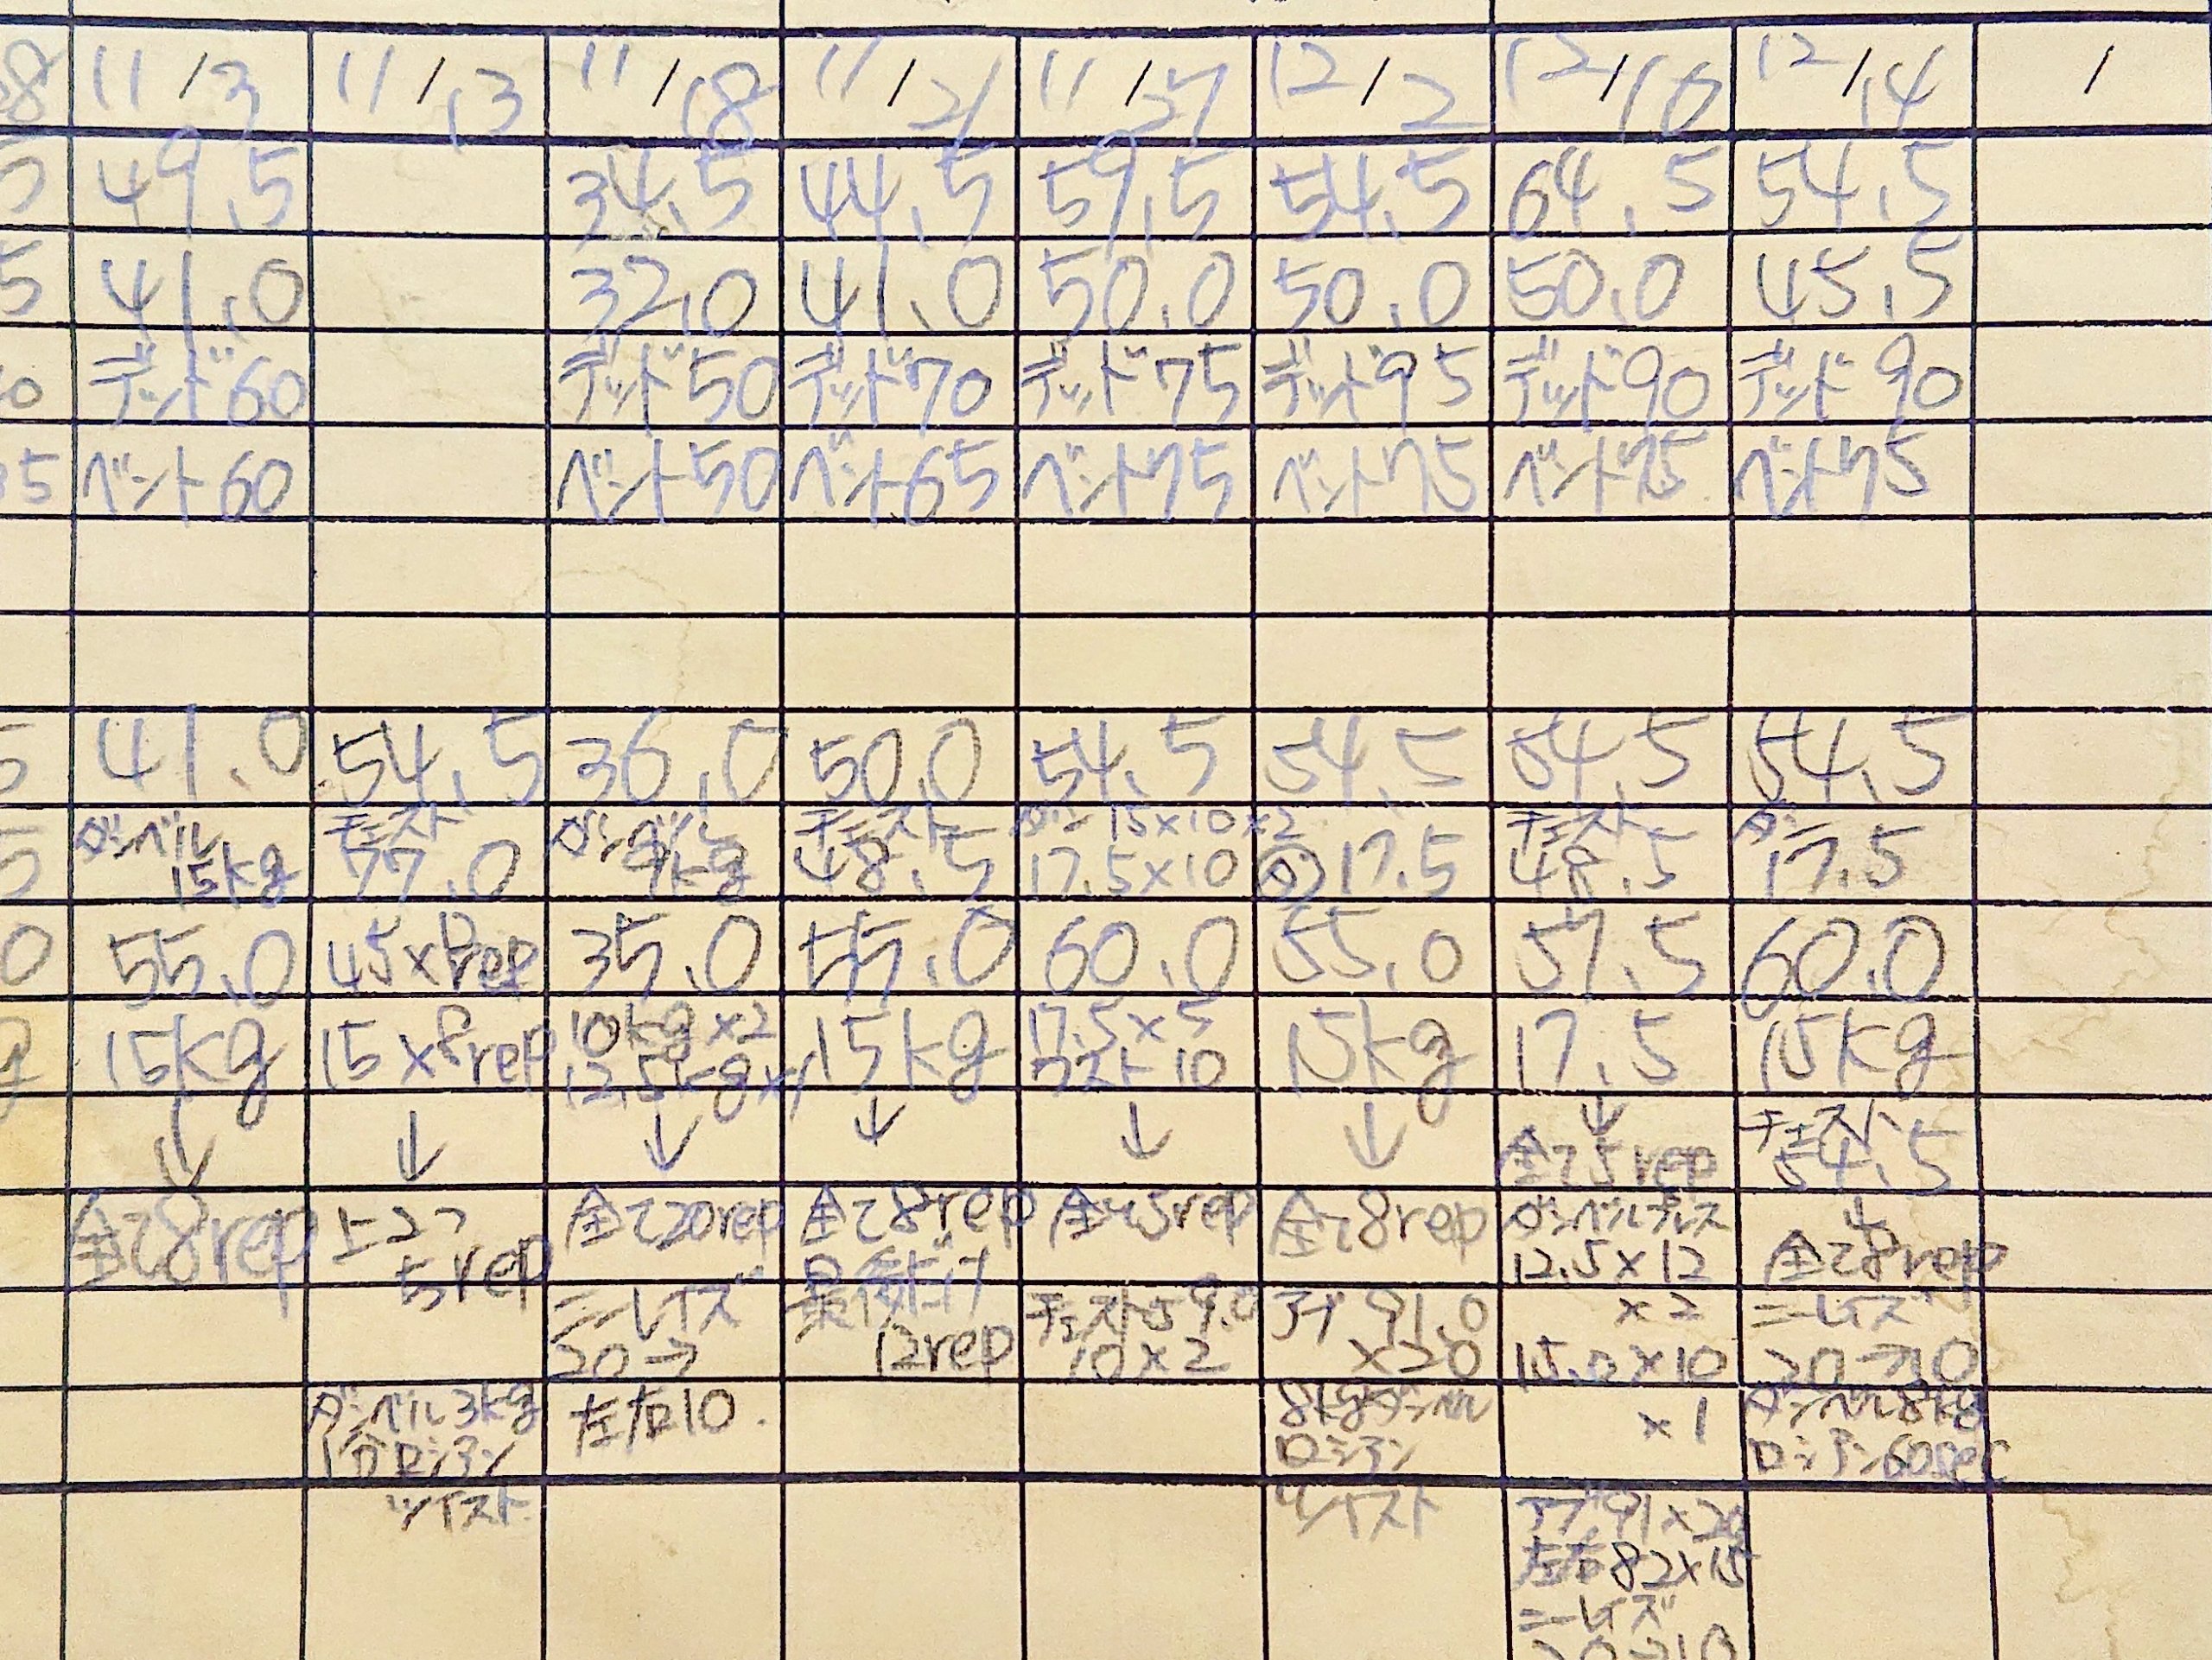 8 11/3 11/13 11/18 11/21 11/27 12/2 12/10 12/14 /
5 49.5 34.5 44.5 59.5 54.5 64.5 54.5
5 41.0 32.0 41.0 50.0 50.0 50.0 45.5
0 デッド60 デッド50 デッド70 デッド75 デッド95 デッド90 デッド90
35 ベント60 ベント50 ベント65 ベント75 ベント75 ベント75 ベント75
5 41.0 54.5 36.0 50.0 54.5 54.5 54.5 54.5
ダンベル チェスト ダンベル チェスト ダン 15×10×2 チェスト ダン
5 15kg 77.0 9kg 48.5 17.5×10 ダ 17.5 48.5 17.5
0 55.0 45×8rep 35.0 55.0 60.0 55.0 57.5 60.0
g 15kg 15×8rep 10kg×2 15kg 17.5×5 15kg 17.5 15kg
12.5kg×1 ラスト10
↓ ↓ ↓ ↓ ↓ ↓ ↓ チェスト
全て5rep 54.5
↓
全て8rep 上2つ 全て20rep 全て8rep 全て5rep 全て8rep ダンベルプレス
5rep 最後だけ 12.5×12 全て8rep
ニーレイズ チェスト59.0 アブ 91.0 ×2 ニーレイズ
20→ 12rep 10×2 ×20 15.0×10 20→10
ダンベル3kg 左右10 8kgダンベル ×1 ダンベル8kg
1分ロシアン ロシアン ロシアン60sec
ツイスト ツイスト アブ91×20
左右82×15
ニーレイズ
20→10